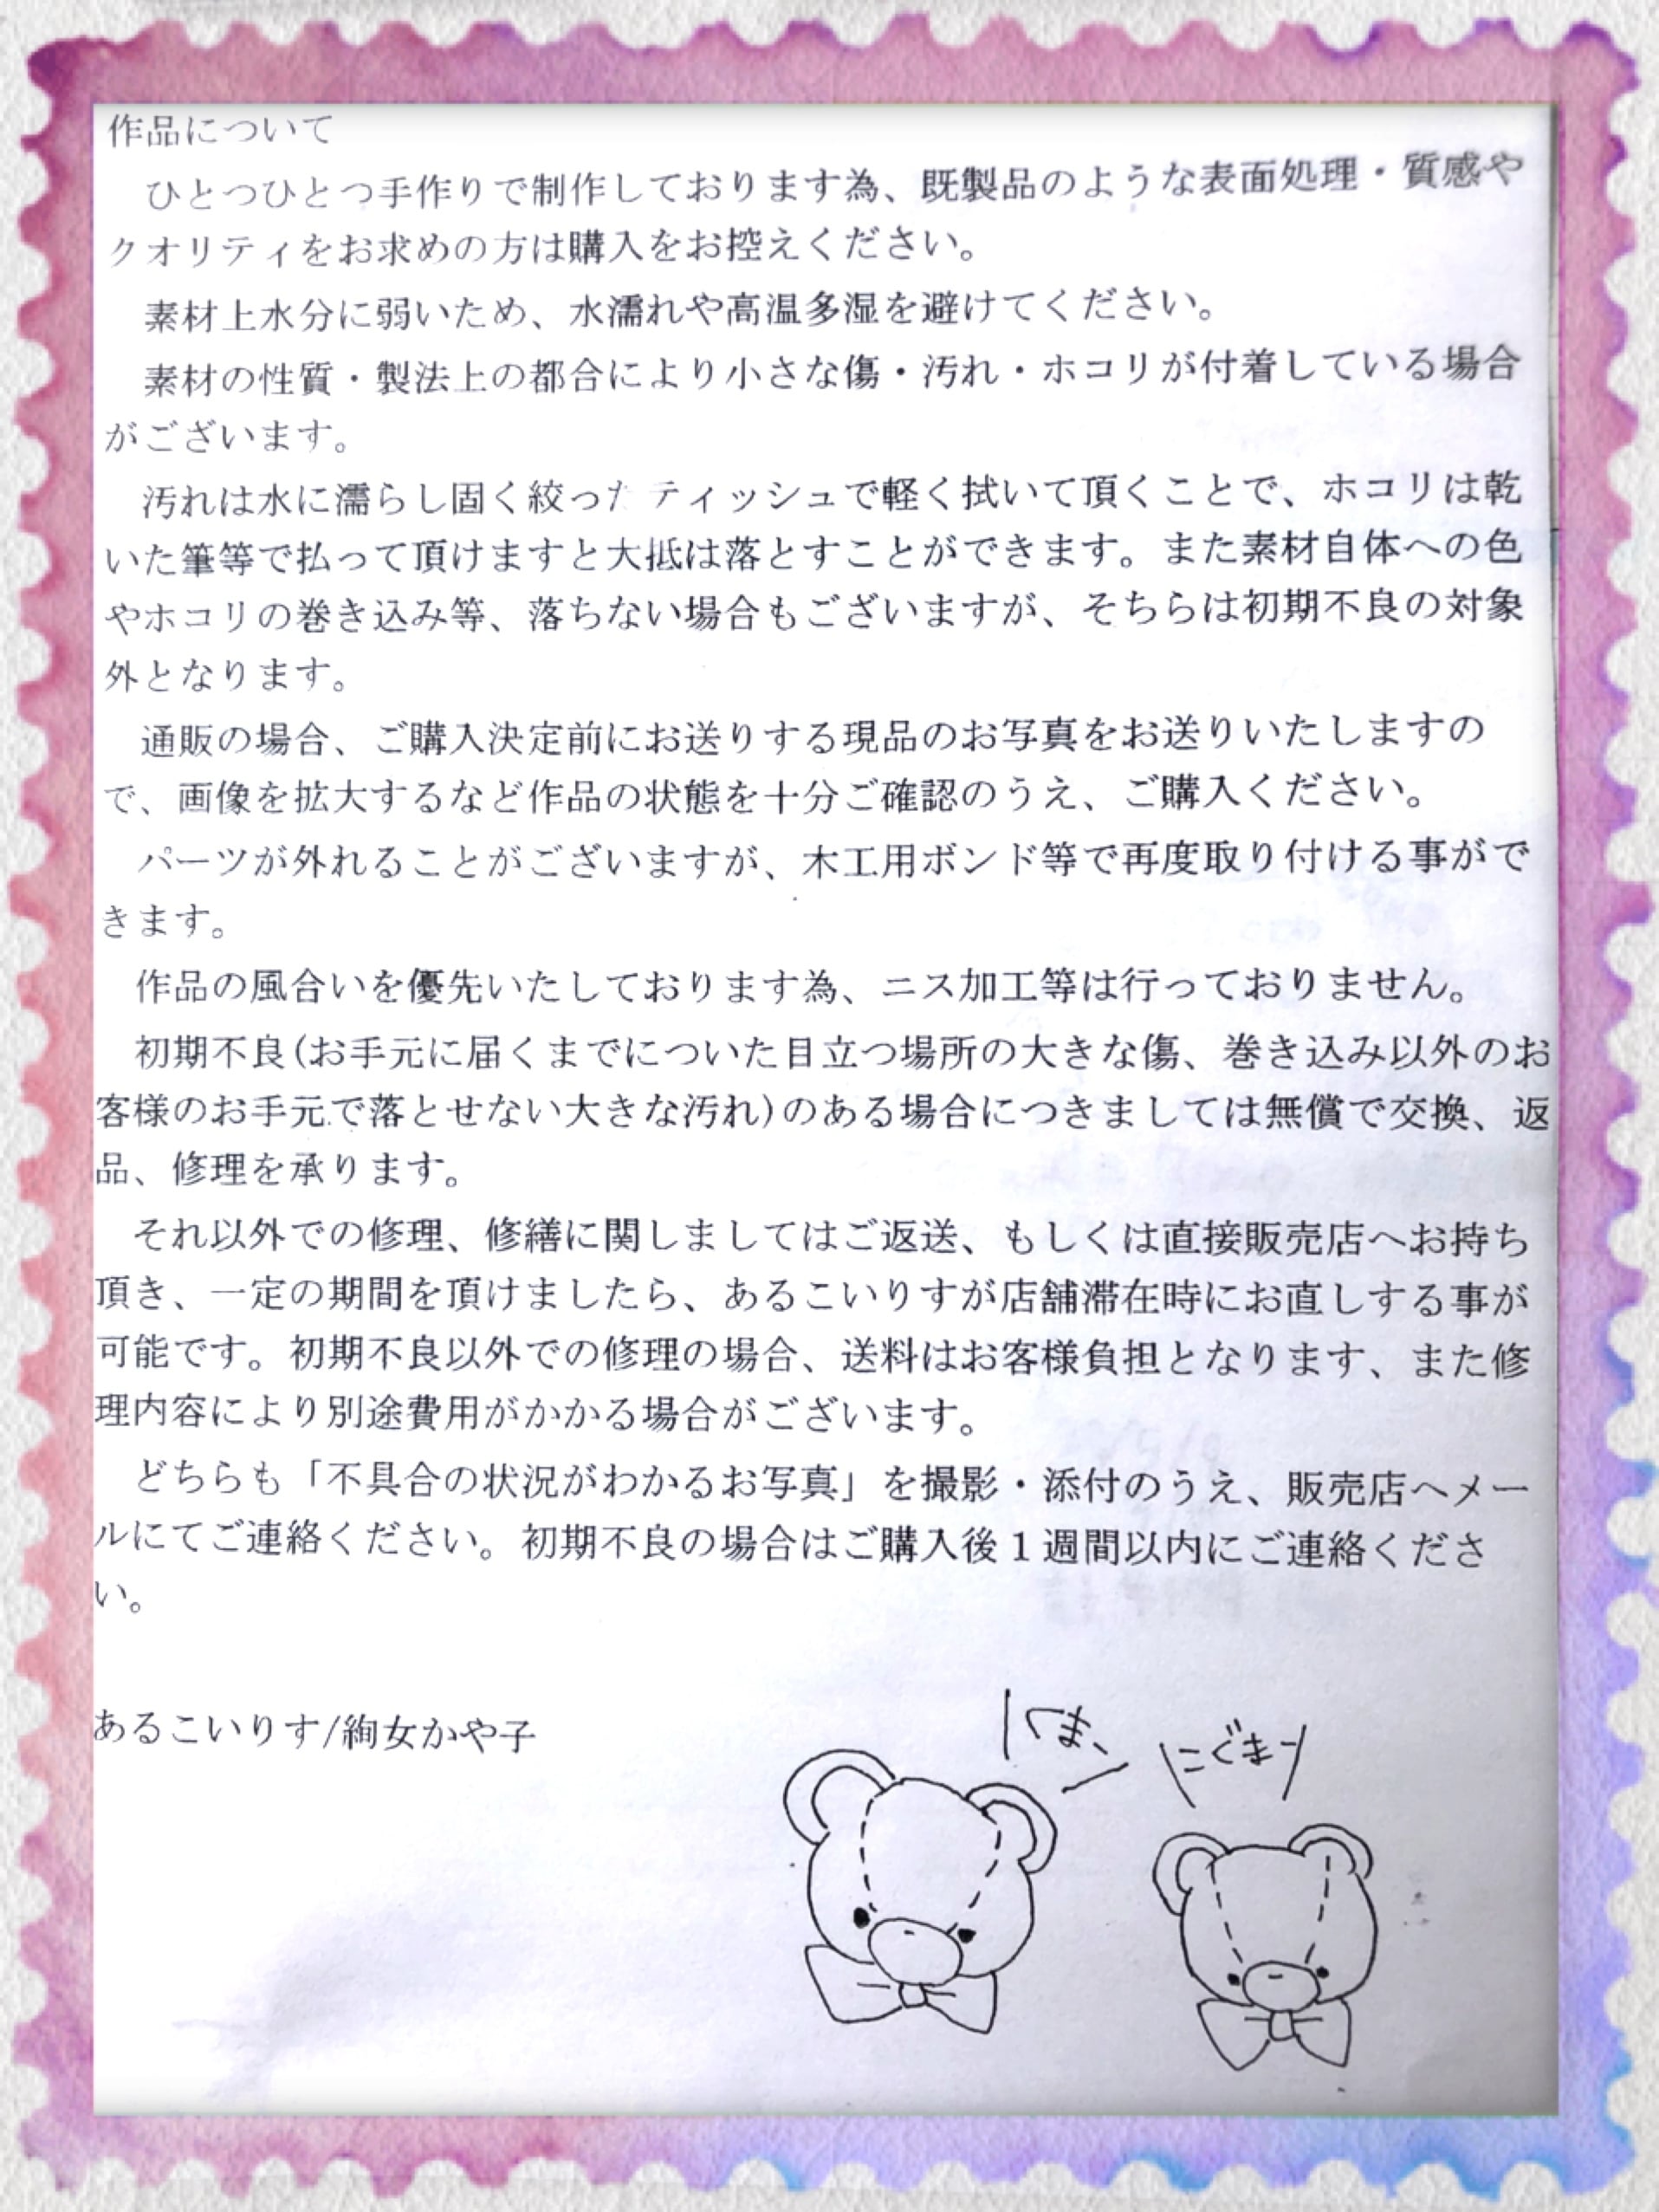 作品について
ひとつひとつ手作りで制作しております為、既製品のような表面処理・質感や
クオリティをお求めの方は購入をお控えください。
素材上水分に弱いため、水濡れや高温多湿を避けてください。
素材の性質・製法上の都合により小さな傷・汚れ・ホコリが付着している場合
がございます。
汚れは水に濡らし固く絞ったティッシュで軽く拭いて頂くことで、ホコリは乾
いた筆等で払って頂けますと大抵は落とすことができます。また素材自体への色
やホコリの巻き込み等、落ちない場合もございますが、そちらは初期不良の対象
外となります。
通販の場合、ご購入決定前にお送りする現品のお写真をお送りいたしますの
で、画像を拡大するなど作品の状態を十分ご確認のうえ、ご購入ください。
パーツが外れることがございますが、木工用ボンド等で再度取り付ける事がで
きます。
作品の風合いを優先いたしております為、ニス加工等は行っておりません。
初期不良(お手元に届くまでについた目立つ場所の大きな傷、巻き込み以外のお
客様のお手元で落とせない大きな汚れ)のある場合につきましては無償で交換、返
品、修理を承ります。
それ以外での修理、修繕に関しましてはご返送、もしくは直接販売店へお持ち
頂き、一定の期間を頂けましたら、あるこいりすが店舗滞在時にお直しする事が
可能です。初期不良以外での修理の場合、送料はお客様負担となります、また修
理内容により別途費用がかかる場合がございます。
どちらも「不具合の状況がわかるお写真」を撮影・添付のうえ、販売店へメー
ルにてご連絡ください。初期不良の場合はご購入後１週間以内にご連絡くださ
い。
あるこいりす/絢女かや子
くま、
こぐまー